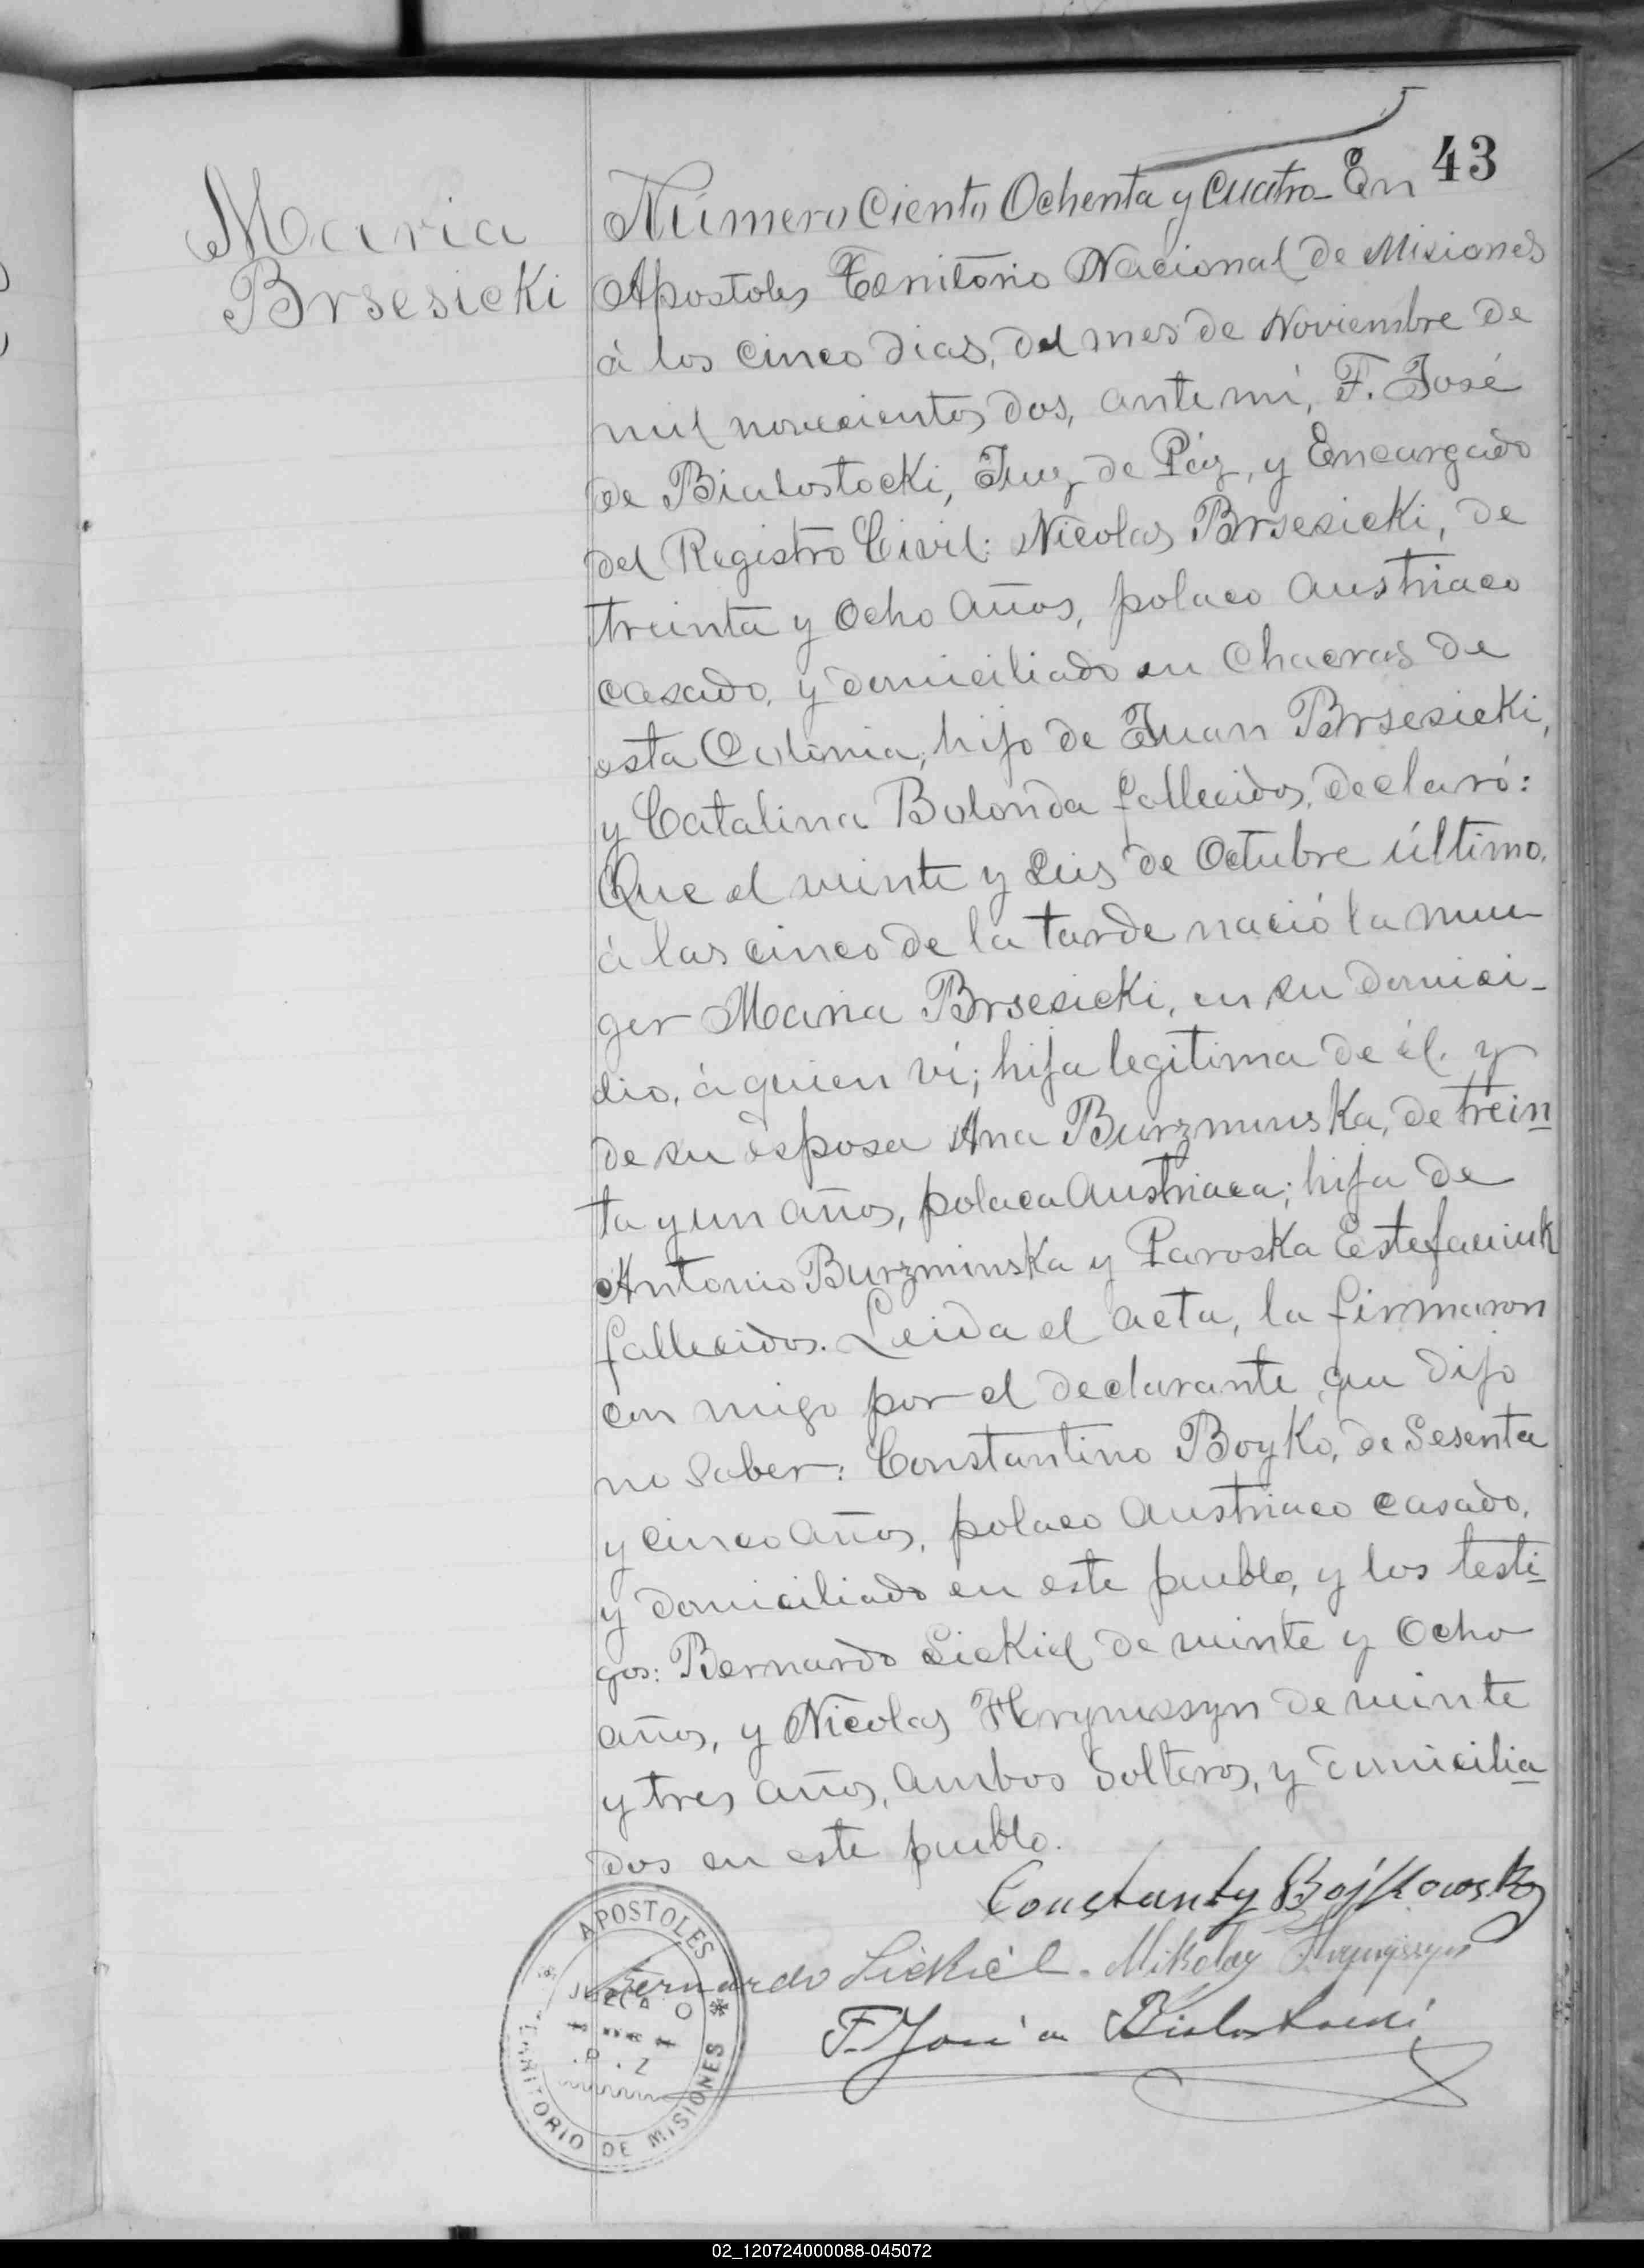 43
Maria
Brsesicki
Número Ciento Ochenta y Cuatro - En
Apostoles Territorio Nacional de Misiones
á los cinco dias, del mes de Noviembre de
mil novecientos dos, ante mi, F. José
de Bialostocki, Juez de Páz, y Encargado
del Registro Civil: Nicolas Brsesicki, de
treinta y Ocho años, polaco Austriaco
casado, y domiciliado en Chacras de
esta Colonia, hijo de Juan Brsesicki,
y Catalina Bolonda fallecidos, declaró:
Que el veinte y seis de Octubre último,
á las cinco de la tarde nació la mu
ger Maria Brsesicki, en su domici-
lio, á quien ví; hija legitima de él y
de su esposa Ana Burzminska, de trein
ta y un años, polaca Austriaca; hija de
Antonio Burzminska y Paroska Estefaniuk
fallecidos. Leida el acta, la firmaron
con migo por el declarante que dijo
no Saber: Constantino Boyko, de Sesenta
y cinco años, polaco Austriaco casado,
y domiciliado en este pueblo, y los testi
gos: Bernardo Siekiel de veinte y Ocho
años, y Nicolas Hrynissyn de veinte
y tres años, ambos Solteros, y domicilia
dos en este pueblo.
Constanty Bojkowski
Bernardo Siekiel. Mikolay Hrynissyn
F. José de Bialostocki
APOSTOLES
TERRITORIO DE MISIONES
02_120724000088-045072